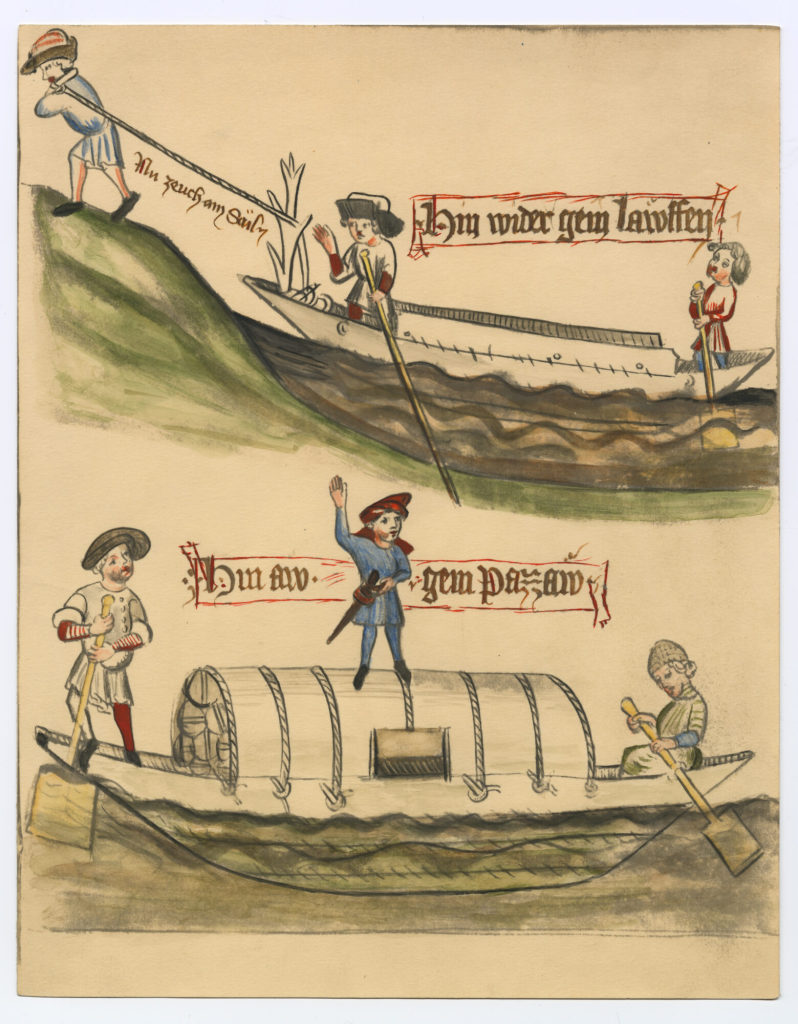 Nu zeuch am Säil
Hin wider gein lawffen
Hin aw · gein pazzaw ·